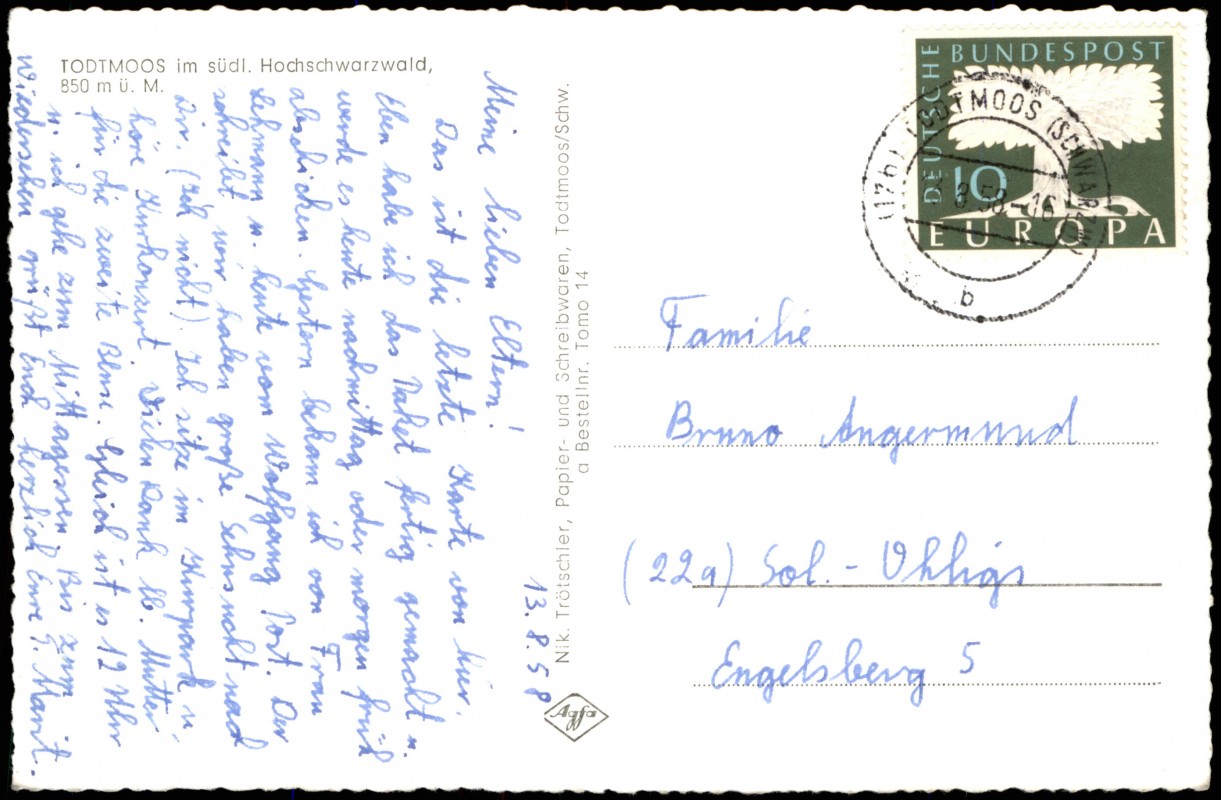 TODTMOOS im südl. Hochschwarzwald,
850 m ü. M.
13.8.58
Meine lieben Eltern!
Das ist die letzte Karte von hier.
Eben habe ich das Paket fertig gemacht u.
werde es heute nachmittag oder morgen früh
abschicken. Gestern bekam ich von Frau
Lehmann u. heute vom Wolfgang Post. Der
schreibt wir haben große Sehnsucht nach
Dir. (Ich nicht). Ich sitze im Kurpark u.
höre Kurkonzert. Vielen Dank lb. Mutter
für die zweite Bluse. Gleich ist es 12 Uhr
u. ich gehe zum Mittagessen. Bis zum
Wiedersehen grüßt Euch herzlich Eure
Nik. Trötschler, Papier- und Schreibwaren, Todtmoos/Schw.
a Bestellnr. Tomo 14
Agfa
DEUTSCHE BUNDESPOST
10
EUROPA
(17b) TODTMOOS (SCHWARZW)
8.58-16
b
Familie
Bruno Angermund
(22a) Sol.-Ohligs
Engelsberg 5